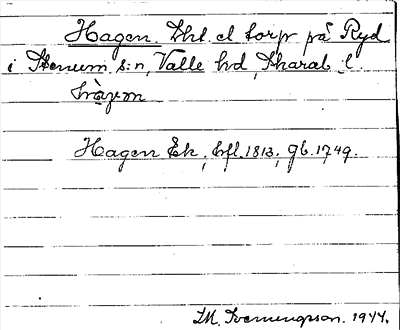 Hagen. Lht el torp på Ryd
i Stenum s:n, Valle hd, Skarab. l.
hàgen
Hagen Ek, hfl. 1813, Gb. 1749.
M. Svenungsson. 1944.